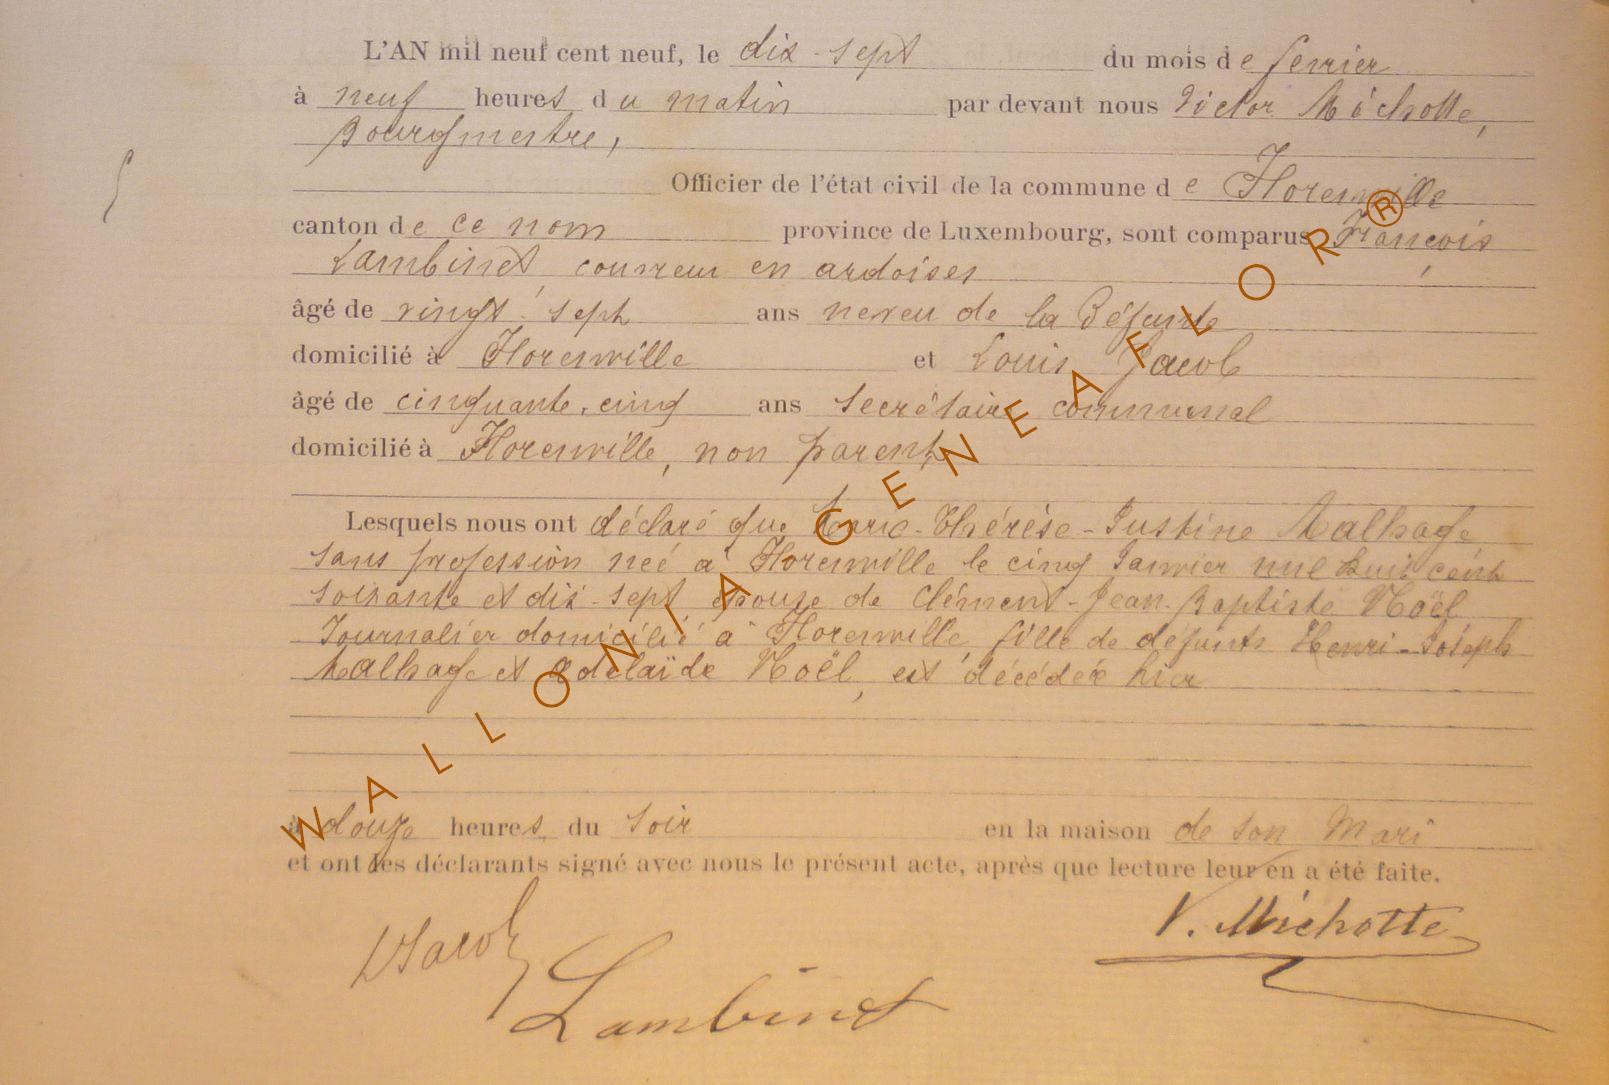 L'AN mil neuf cent neuf, le dix-sept du mois de fevrier
à neuf heures du matin par devant nous Victor Michotte,
Bourgmestre,
Officier de l'état civil de la commune de Florenville
canton de ce nom province de Luxembourg, sont comparus François
Lambinet, couvreur en ardoises
âgé de vingt-sept ans neveu de la Défunte
domicilié à Florenville et Louis Jacob
âgé de cinquante-cinq ans Secrétaire communal
domicilié à Florenville, non parent
Lesquels nous ont déclaré que Marie-Thérèse-Justine Malhage
sans profession neé à Florenville le cinq Janvier mil huit cent
soixante et dix-sept épouse de Clément-Jean-Baptiste Noël
Journalier domicilié à Florenville, fille de défunts Henri-Joseph
Malhage et Adelaïde Noël, est décédée hier
à douze heures du soir en la maison de son Mari
et ont les déclarants signé avec nous le présent acte, après que lecture leur en a été faite.
V. Michotte
LJacob
Lambinet
WALLONIA GENEAFLOR®